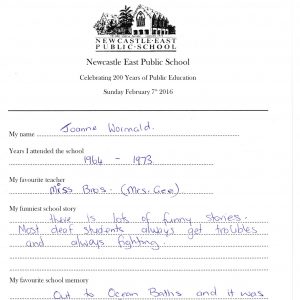 NEWCASTLE·EAST
PUBLIC·SCHOOL
Newcastle East Public School
Celebrating 200 Years of Public Education
Sunday February 7th 2016
My name Joanne Wormald.
Years I attended the school
1964 - 1973
My favourite teacher
Miss Bros. (Mrs. Gee)
My funniest school story
there is lots of funny stories.
Most deaf students always get troubles
and always fighting.
My favourite school memory
Out to Ocean Baths and it was